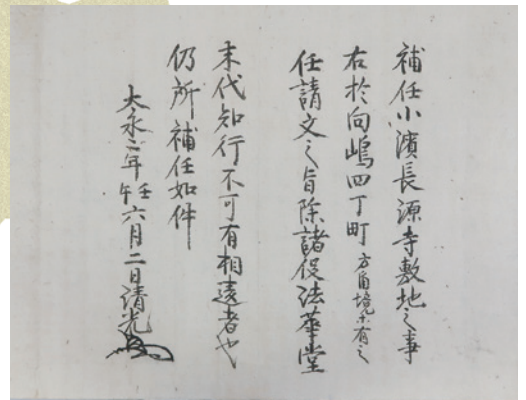 補任小濱長源寺敷地之事
右於向嶋四丁町方角境示有之
任請文之旨除諸役法華堂
末代知行不可有相違者也
仍所補任如件
大永二年壬午六月二日清光